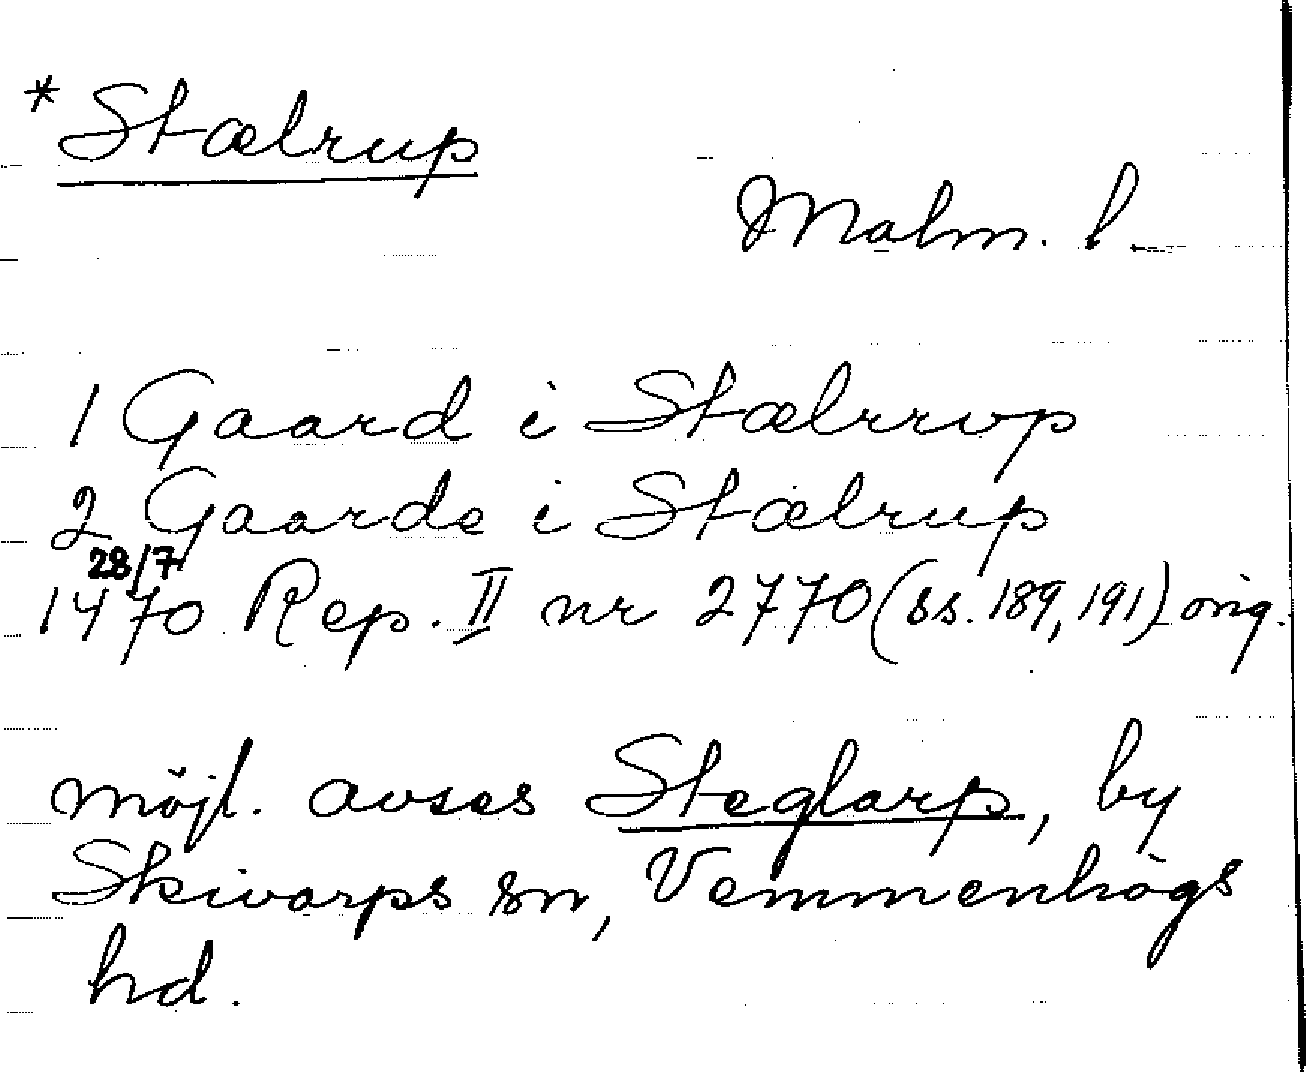 * Stælrup
Malm. l.
1 Gaard i Stælrrvp
2 Gaarde i Stælrup
28/7
1470 Rep. II nr 2770 (ss. 189, 191) orig.
möjl. avses Steglarp, by
Skivarps sn, Vemmenhögs
hd.